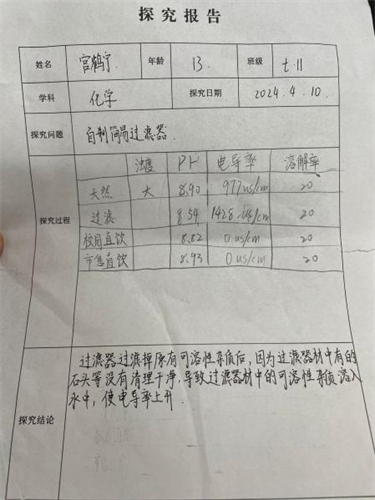 探究报告
姓名 宫鹤宁 年龄 13. 班级 七.11
学科 化学 探究日期 2024.4.10.
探究问题 自制简易过滤器.
探究过程
浊度 PH 电导率 溶解率
天然 大 8.90 977us/cm 20
过滤 8.54 1428us/cm 20
校园直饮 8.82 0us/cm 20
市售直饮 8.93 0us/cm 20
过滤器过滤掉原有可溶性杂质后,因为过滤器材中有的
石头等没有清理干净,导致过滤器材中的可溶性杂质溶入
水中,使电导率上升.
探究结论